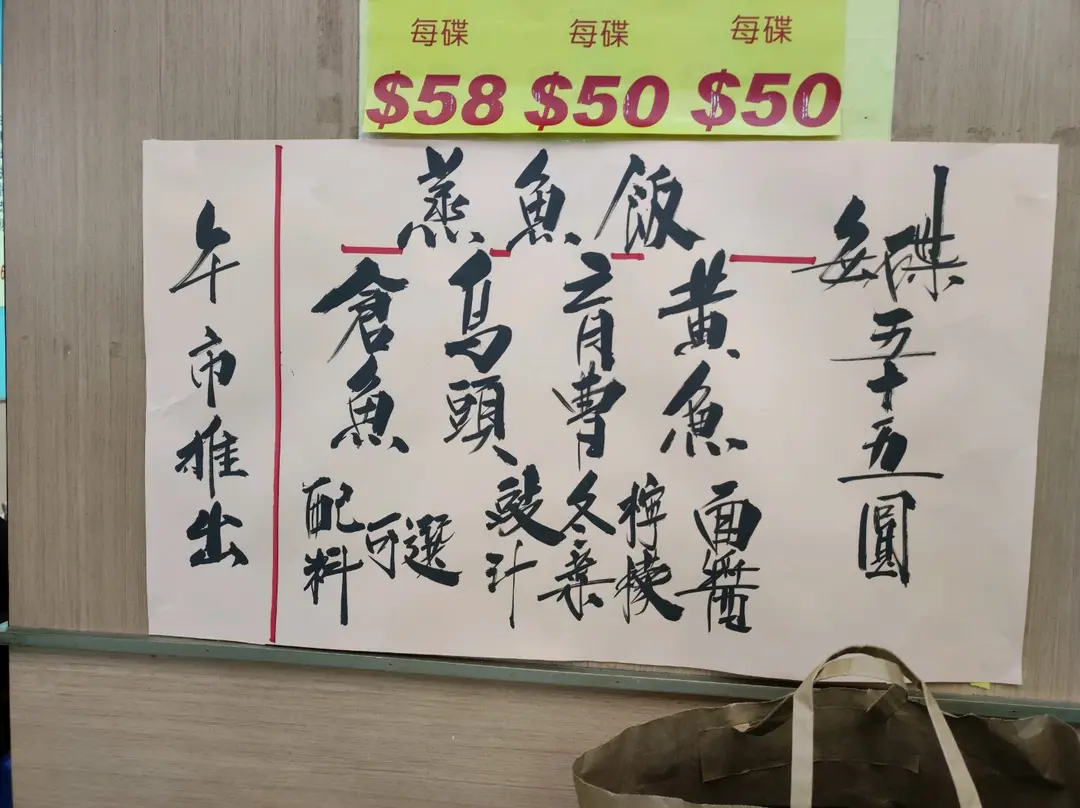 每碟 每碟 每碟
$58 $50 $50
蒸魚飯
每碟五十五圓
黃魚
育曹
烏頭
倉魚
配料可選
豉汁
冬菜
檸檬
面醬
午市推出